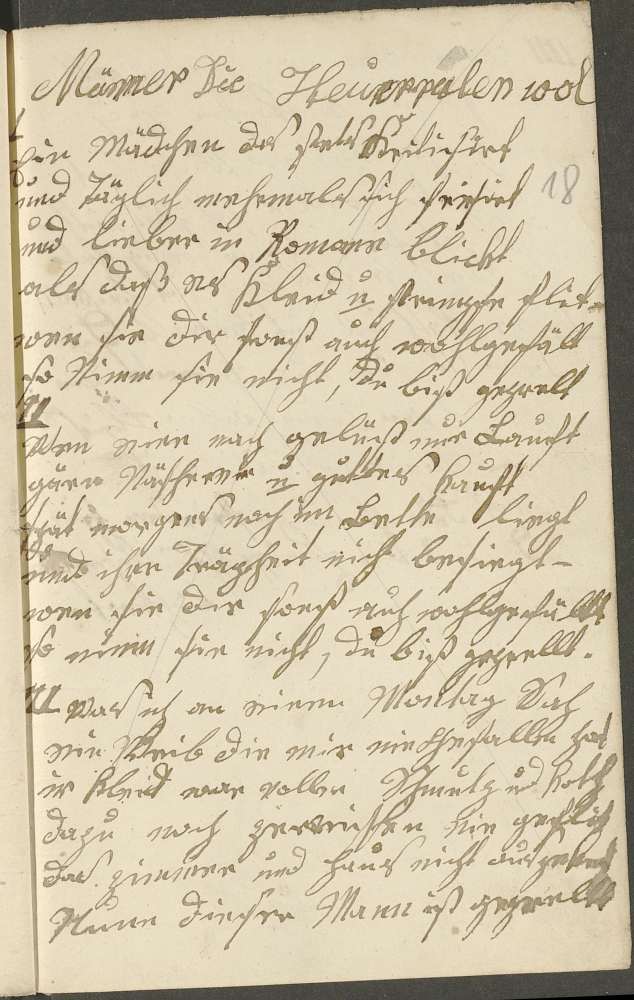 Männer Die Heurathen wol
I
Ein Mädchen das stets kritisirt
und Täglich mehrmals sich frisirt
18
und lieber in Romane blickt
als daß es Kleid u strimpfe flikt
wen sie dir sonst auch wohlgefält
so Nimm sie nicht, du bist geprelt
II
Wen eine nach gelüst nur Lauft
gären Näschereie u guttes kauft
spät morgens noch im Bette liegt
und ihre Trägheit nicht besiegt
wen sie dir sonst auch wohlgefällt
so nimm sie nicht, du bist geprellt.
III was ich an einem Montag Sah
ein Weib die mir nie gefallen hat
ir Kleid war voller Schmutz und Koth
dazu noch zerrissen nie geflickt
das zimmer und haus nicht ausgekehrt
Nunn dieser Mann ist geprellt